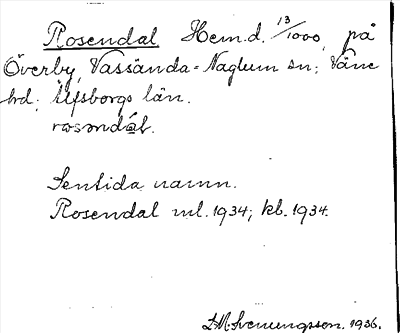 Rosendal Hem.d. 13/1000, på
Överby, Vassända-Naglum sn; Väne
hd; Älfsborgs län.
rosəndɑ́l.
Sentida namn.
Rosendal ml. 1934; kb. 1934.
L.M. Svenungsson. 1936.